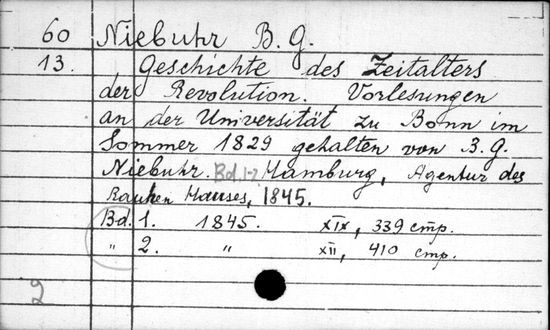 60 Niebuhr B. G.
13. Geschichte des Zeitalters
der Revolution. Vorlesungen
an der Universität zu Bonn im
Sommer 1829 gehalten von B. G.
Niebuhr. Bd. 1-2 Hamburg, Agentur des
Rauhen Hauses, 1845.
Bd. 1. 1845. XIX, 339 стр.
" 2. " XII, 410 стр.
2